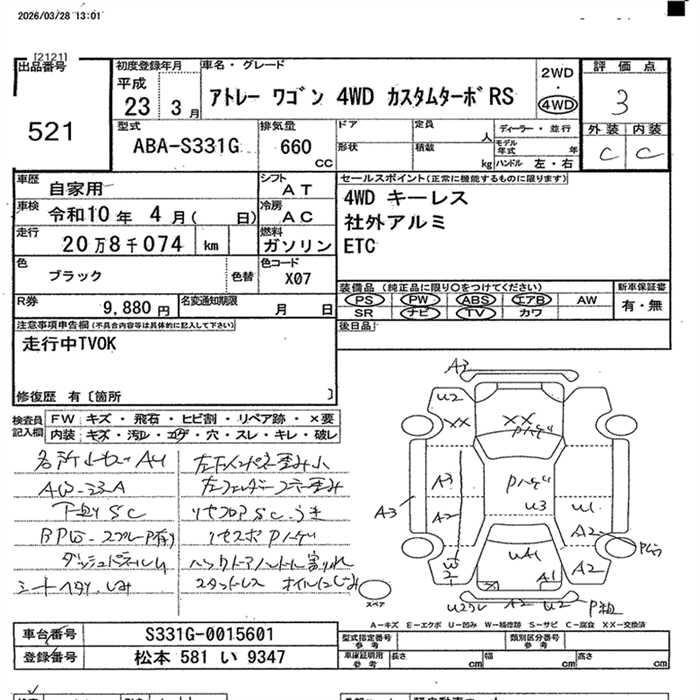 2026/03/28 13:01
[2121]
出品番号
521
初度登録年月
平成
23 3 月
車名・グレード
アトレー ワゴン 4WD カスタムターボRS
2WD
・
4WD
評価点
3
外装 内装
C C
型式
ABA-S331G
排気量
660
cc
ドア
定員
人
形状
積数
kg
ディーラー・並行
モデル年式 年
ハンドル 左・右
車歴
自家用
シフト
AT
車検
令和10年 4月( 日)
冷房
AC
走行
20万8千074 km
燃料
ガソリン
色
ブラック
色替
色コード
X07
R券
9,880 円
名変通知期限
月 日
セールスポイント(正常に機能するものに限ります)
4WD キーレス
社外アルミ
ETC
装備品 (純正品に限り○をつけてください)
PS PW ABS エアB AW
SR ナビ TV カワ
新車保証書
有・無
後日品
注意事項申告欄(不具合内容等は具体的に記入して下さい)
走行中TVOK
修復歴 有〔箇所 〕
検査員記入欄
FW キズ・飛石・ヒビ割・リペア跡・×要
内装 キズ・汚レ・コゲ・穴・スレ・キレ・破レ
下廻りSC
ダッシュパネルしみ
シートヘタリ、しみ
左フェンダーステー歪み
リヤフロアSC、うき
A3
U2
XX
XX
Pハゲ
A3
A2
A3
Pハゲ
U3
U1
A2
A2
W2
UA1
X
A1
A2
U2
スペア
A-キズ E-エクボ U-凹み W-補修跡 S-サビ C-腐食 XX-交換済
車台番号
S331G-0015601
登録番号
松本 581 い 9347
型式指定番号
参考
類別区分番号
参考
車庫証明用
参考
長さ cm
幅 cm
高さ cm